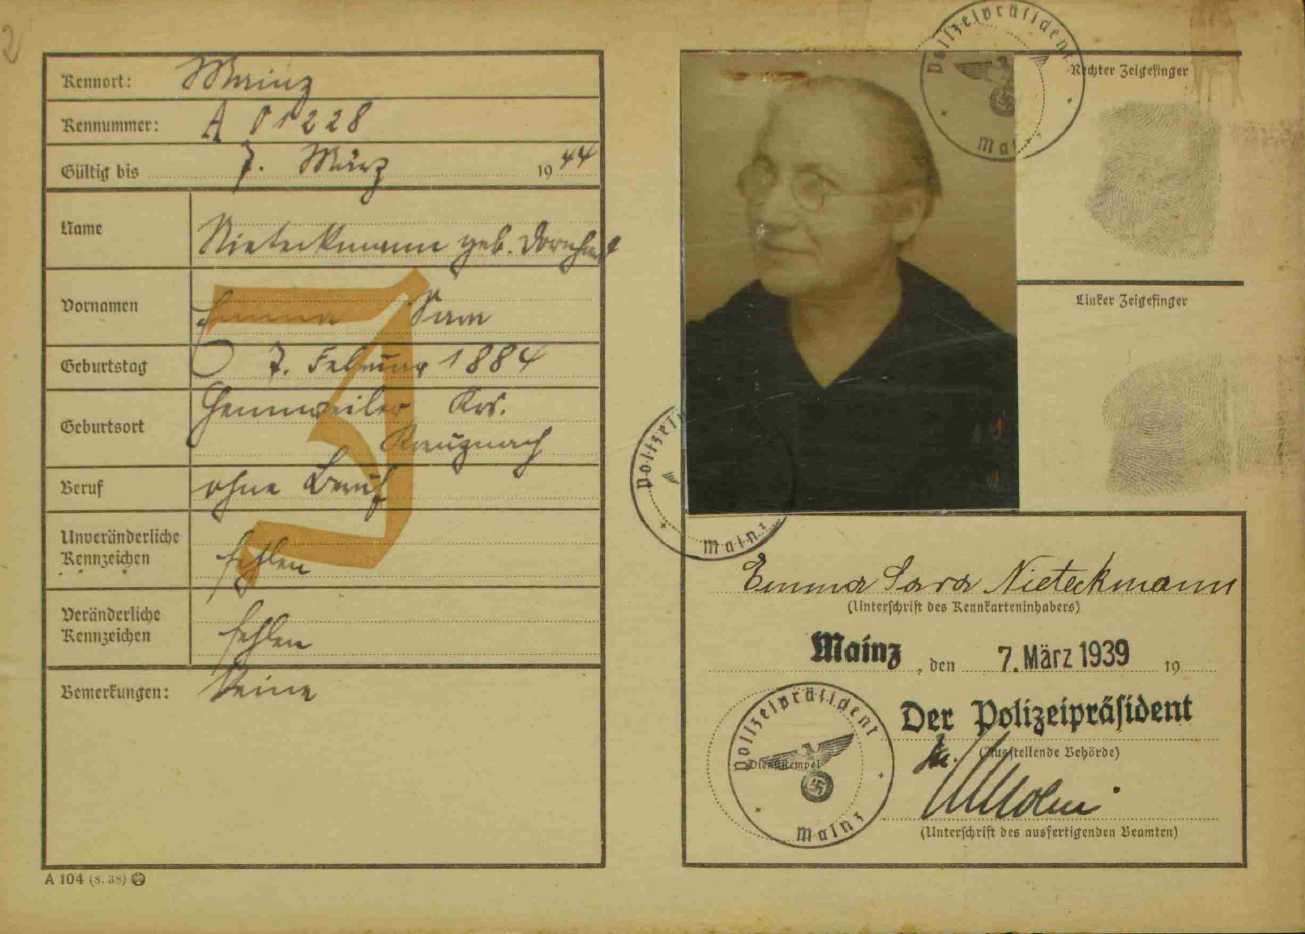 2
Kennort: Mainz
Kennummer: A 01228
Gültig bis 7. März 1944
Name Nieteckmann geb.
Vornamen Emma Sara
Geburtstag 7. Februar 1884
Geburtsort Hennweiler Krs.
Kreuznach
Beruf ohne Beruf
Unveränderliche
Kennzeichen fehlen
Veränderliche
Kennzeichen fehlen
Bemerkungen: Keine
J
A 104 (8. 38)
Polizeipräsident
Mainz
Rechter Zeigefinger
Linker Zeigefinger
Polizei
Mainz
Emma Sara Nieteckmann
(Unterschrift des Kennkarteninhabers)
Mainz, den 7. März 1939 19
Der Polizeipräsident
(Ausstellende Behörde)
Polizeipräsident
Dienststempel
Mainz
(Unterschrift des ausfertigenden Beamten)